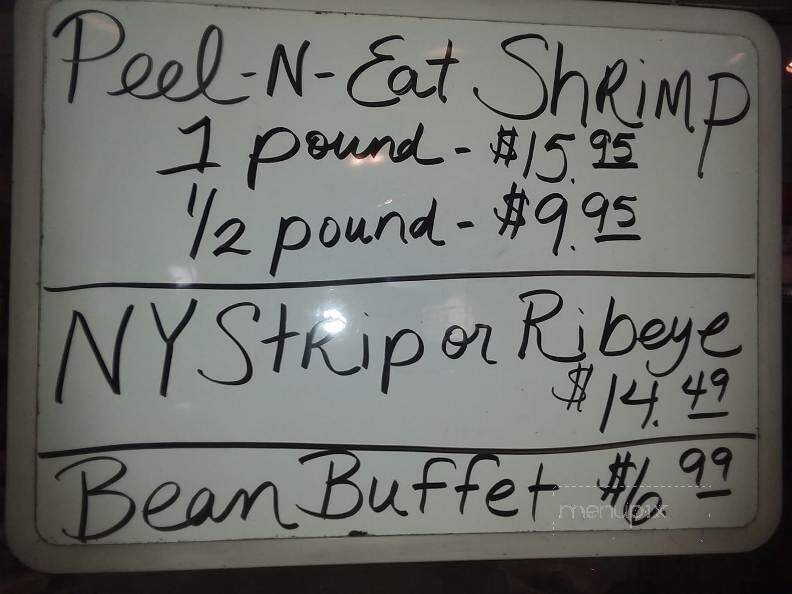 Peel-N-Eat Shrimp
1 pound - $15.95
1/2 pound - $9.95
NY Strip or Ribeye
$14.49
Bean Buffet $6.99
menupix